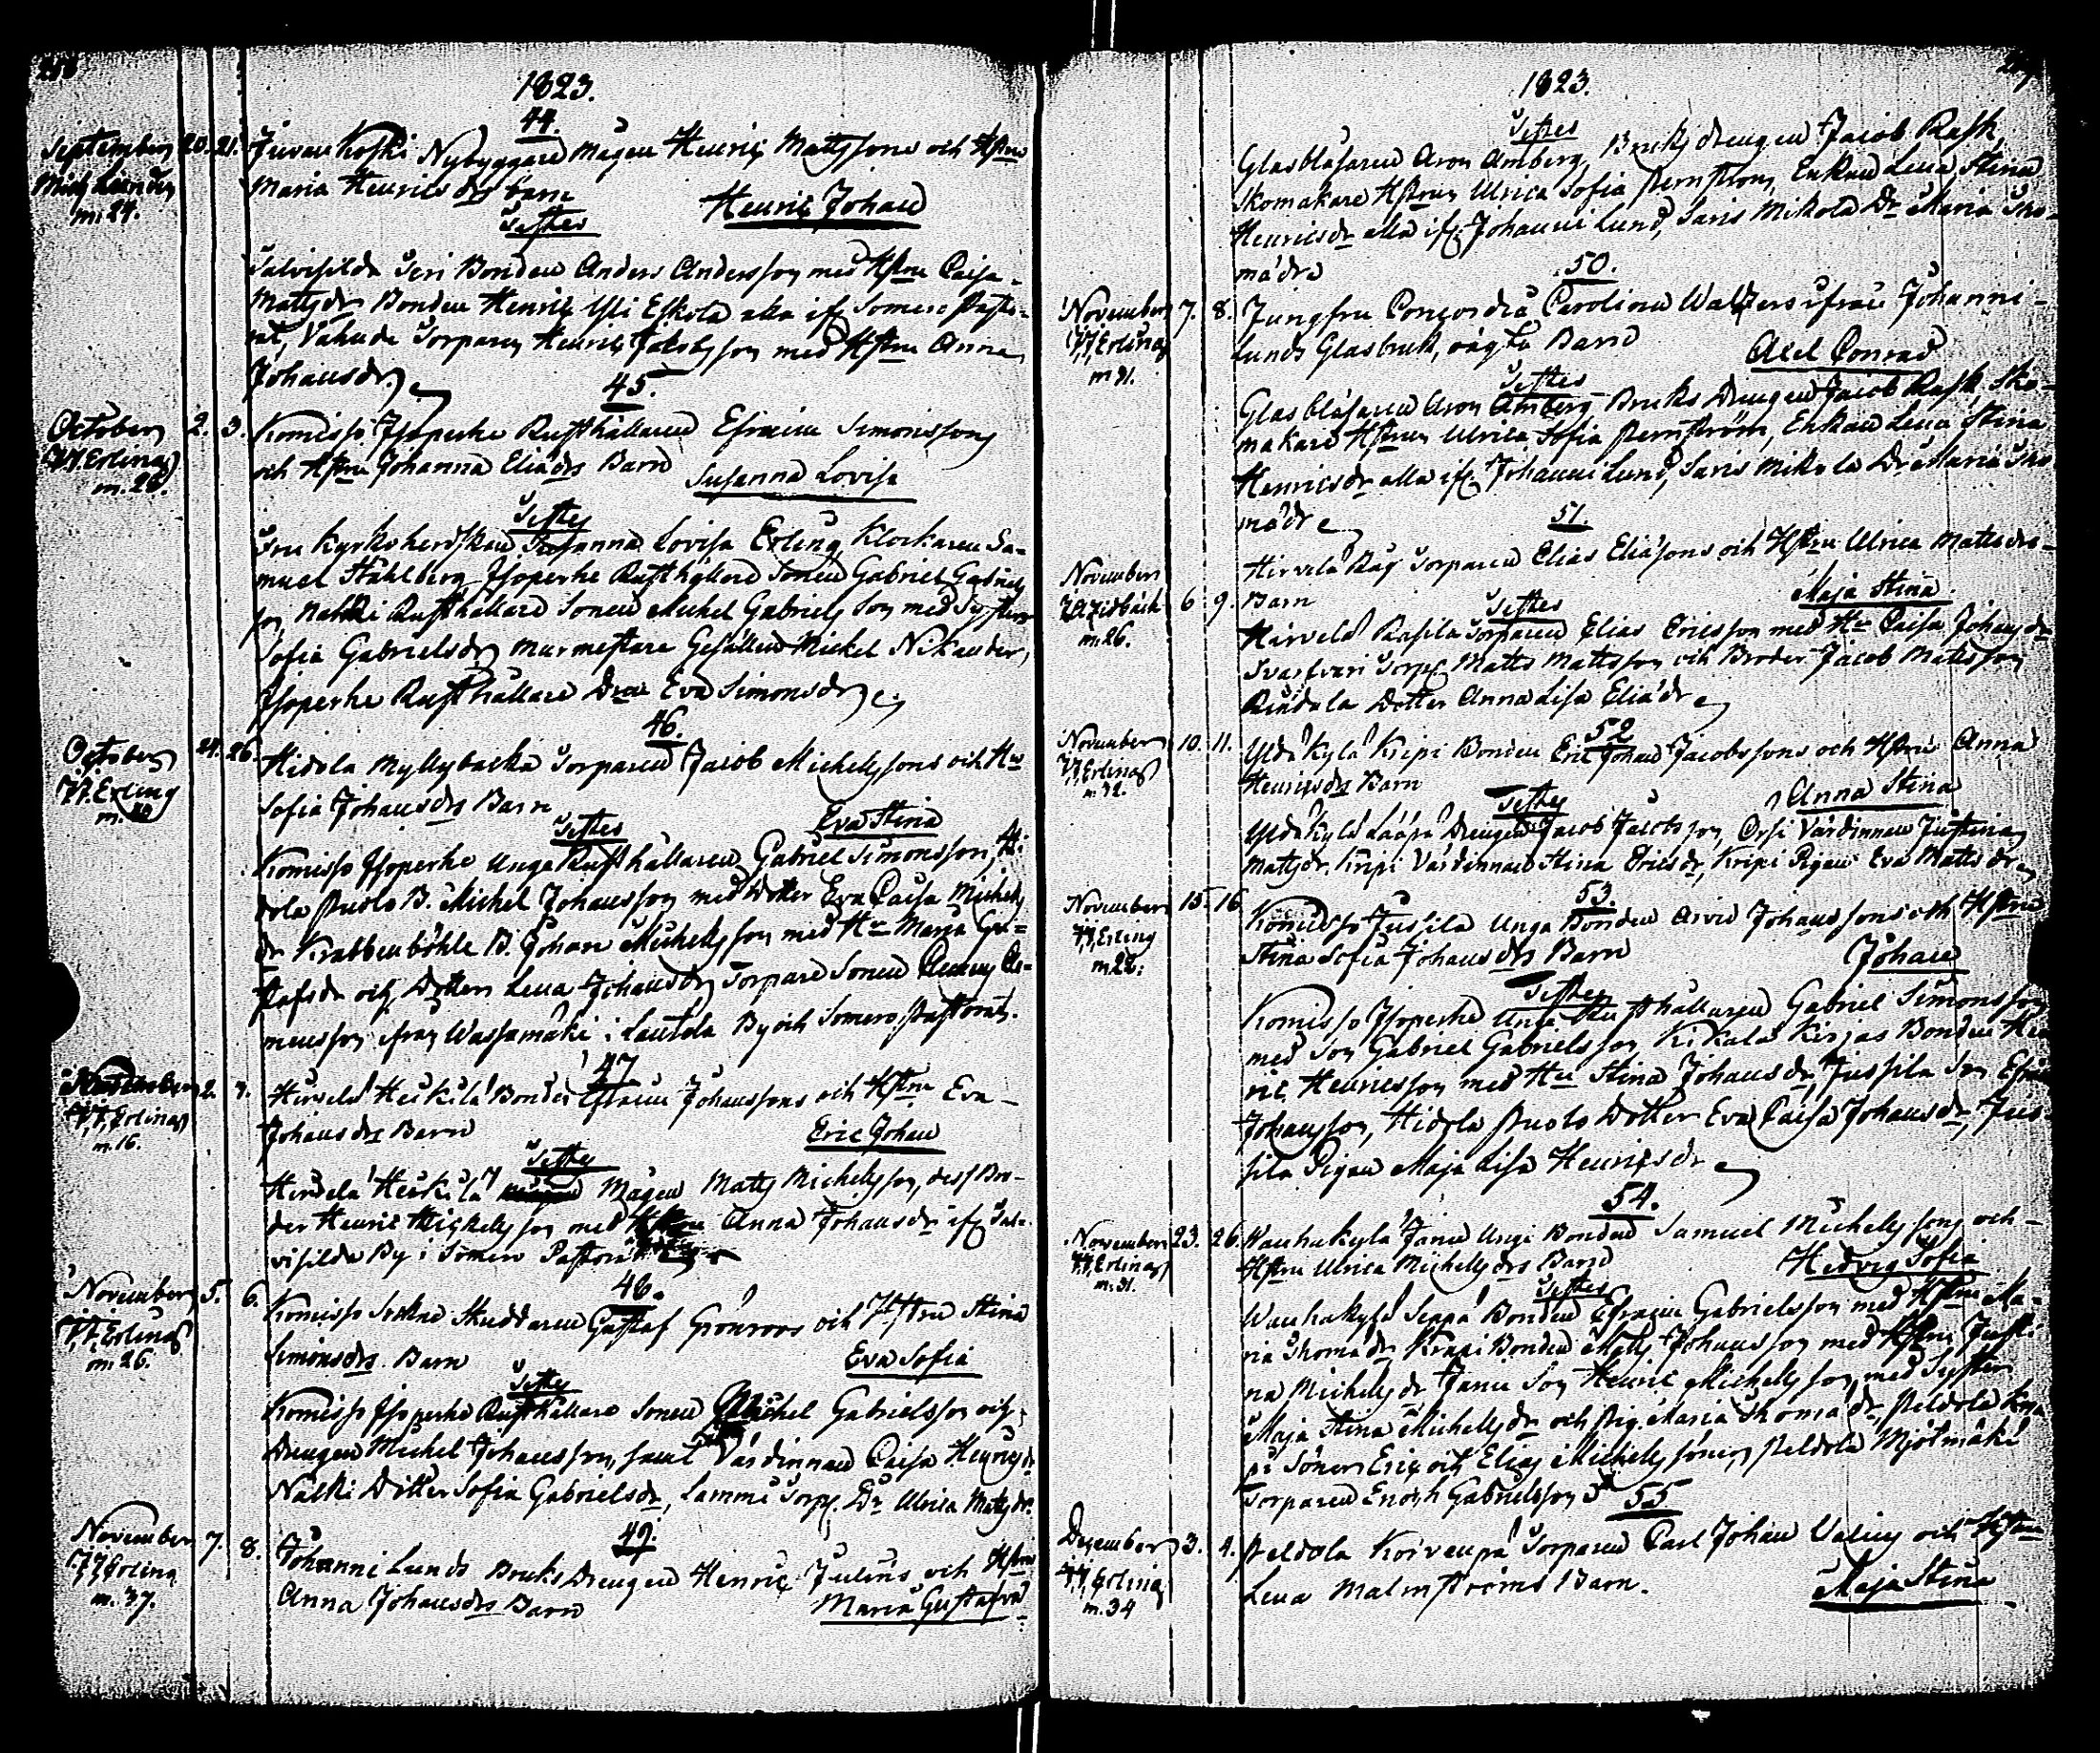 1823.
44.
September 20. 21. Juvankoski Nybyggare Mågen Henric Mattssons och Hstru
Mich Lindén
m. 24.
Maria Henricsdrs barn
Henric Johan
Testes
Talvisilda Seri Bonden Anders Andersson med Hstru Caisa
Mattsdr Bonden Henric Yli Eskola alla if Somero Pasto-
rat, Torparen Henric Jakobsson med Hstru Anna
Johansdr
45.
October 2. 3. Komisso Isoperhe Rusthållaren Efraim Simonssons
J.J. Erling
m. 28.
och Hstru Johanna Eliædrs Barn
Susanna Lovisa
Testes
Fru Kyrkoherdskan Susanna Lovisa Erling, Klockaren Sa-
muel Ståhlberg, Isoperhe Rusthållare Sonen Gabriel Gabriels
son Nalkki Rusthållare Sonen Michel Gabrielsson med Systern
Sofia Gabrielsdr murmestare Gesällen Mickel Nikander,
Isoperhe Rusthållare Drn Eva Simonsdr
46.
October 24. 26. Hidola Myllybacka Torparen Jacob Michelssons och Hu
J.J. Erling
Sofia Johansdrs Barn
Eva Stina
Testes
Komisso Isoperhe Unga Rusthållaren Gabriel Simonsson, Hi-
dola Puolo B. Michel Johansson med Dotter Eva Caisa Michels
dr Krabbenböhle B. Johan Michelsson med Hu Maria Gu-
stafsdr och Dotter Lena Johansdr Torpare Sonen Clemens Cle-
mensson ifrån Wassamäki i Lautela By och Somero Pastorat.
47
2. 3. Hirvelä Heikilä Bonden Efraim Johanssons och Hstru Eva
J.J. Erling
m. 16.
Johansdrs Barn
Eric Johan
Testes
Hirvelä Heikilä Mågen Matts Michelsson, dess Bro-
der Henric Michelsson med Hstru Anna Johansdr if Tal-
visilda By i Somero Pastorat
48.
November 5. 6. Komisso Skuddaren Gustaf Grönroos och Hstru Stina
J.J. Erling
m. 26.
Simonsdrs Barn
Eva Sofia
Testes
Komisso Isoperhe Rusthållare Sonen Michel Gabrielsson och
Drengen Michel Johansson, samt Värdinnan Caisa Henricsdr
Nalki Dotter Sofia Gabrielsdr, Lammi Torp. Dr Ulrica Mattsdr.
49.
November 7. 8. Johanni Lunds Bruks Drengen Henric Julius och Hstrus
J.J. Erling
m. 37.
Anna Johansdrs Barn
Maria Gustafva
1823.
Testes
Glasblåsaren Aron Amberg, Bruks drengen Jacob Rask,
Skomakare Hstrun Ulrica Sofia Stenström, Enkan Lena Stina
Henricsdr alla if Johanni Lund, Saris Mikola Dr Maria Tho-
mædr
50.
November 7. 8. Jungfru Concordia Carolina Walters ifrån Johanni
J.J. Erling
m 31.
Lunds Glasbruk, oägta Barn
Axel Conrad
Testes
Glasblåsaren Aron Amberg Bruks Drengen Jacob Rask, Sko-
makare Hstrun Ulrica Sofia Stenström, Enkan Lena Stina
Henricsdr alla if Johanni Lund, Saris Mikola Dr Maria Tho
mædr
51.
November 6 9. Hirvelä Räg Torparen Elias Eliæsons och Hstru Ulrica Mattsdrs
m. 26.
Barn
Maja Stina
Testes
Hirvelä Rasila Torparen Elias Ericsson med Hu Caisa Johansdr
Torp. Matts Mattsson och Broder Jacob Mattsson
Dotter Anna Lisa Eliædr
52
November 10. 11. Yldäkylä Kripi Bonden Eric Johan Jacobssons och Hstru Anna
J.J. Erling
m. 32.
Henricsdrs Barn
Anna Stina
Testes
Yldäkylä Drengen Jacob Jacobsson, Värdinnan Justina
Mattsdr. Kripi Värdinnan Stina Ericsdr, Kripi Pigan Eva Mattsdr
53.
November 15. 16 Komisso Jussila Unga Bonden Arvid Johanssons och Hstru
J.J. Erling
m 22.
Stina Sofia Johansdrs Barn
Johan
Testes
Komisso Isoperhe Unga Rusthållaren Gabriel Simonsson
med Son Gabriel Gabrielsson Kikala Kirjas Bonden Hen
ric Henricsson med Hu Stina Johansdr, Jussila Son Efraim
Johansson, Hidola Puolo Dotter Eva Caisa Johansdr, Jus-
sila Pigan Maja Lisa Henricsdr
54.
November 23. 26. Wanhakylä Jani Ungi Bonden Samuel Michelssons och
J.J. Erling
m. 31.
Hstru Ulrica Michelsdrs Barn
Hedvig Sofia
Testes
Wanhakylä Seppä Bonden Efraim Gabrielsson med Hstru Ma-
ria Thomædr Krapi Bonden Matts Johansson med Hstru Justi
na Michelsdr Jani Son Henric Michelsson, med Syster
Maja Stina Michelsdr och Pig. Maria Thomædr, Peldola
Söner Eric och Elias Michelssöner, Peldola Mjötmäki
Torparen Enoch Gabrielsson
55
December 3. 4. Peldola Koivenpä Torparen Carl Johan Valins och Hstru
J.J. Erling
m. 34
Lena Malmströms Barn.
Maja Stina